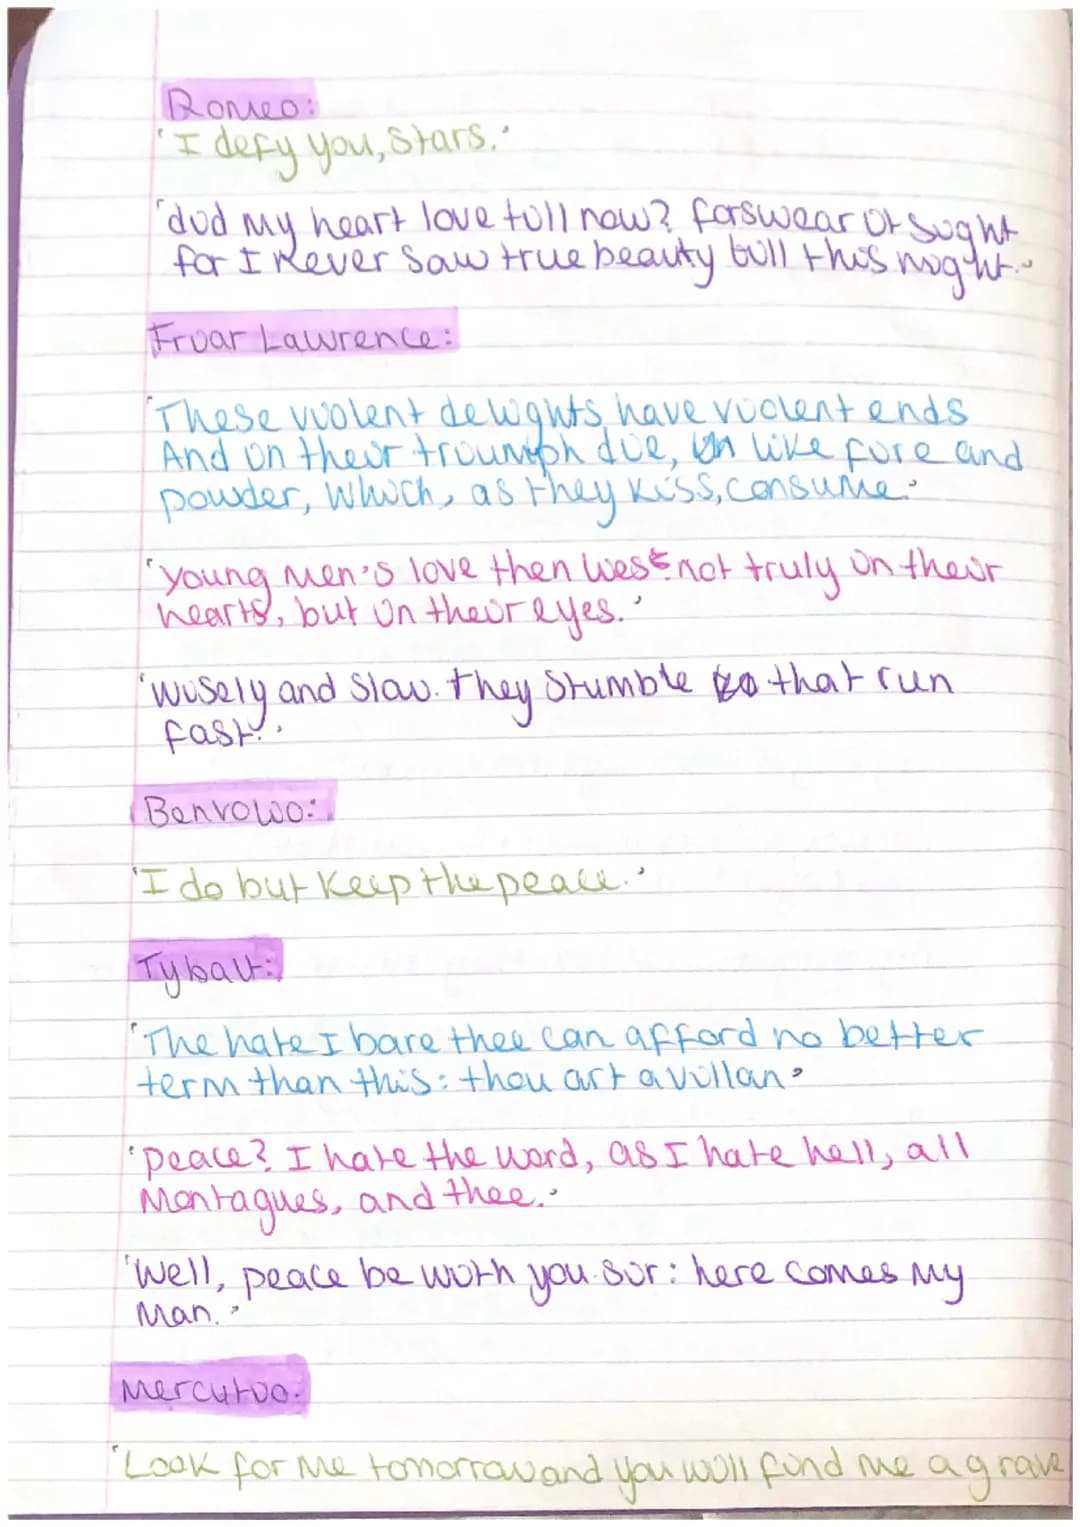 Romeo:
'I defy you, Stars.'
'did my heart love till now? forswear it sight
for I never saw true beauty till this night.'
Friar Lawrence:
'These violent delights have violent ends
And in their triumph die, in like fire and
powder, which, as they kiss, consume.'
'young men's love then lies not truly in their
hearts, but in their eyes.'
'wisely and slow. they stumble that run
fast.'
Benvolio:
'I do but keep the peace.'
Tybalt:
'The hate I bare thee can afford no better
term than this: thou art a villan'
'peace? I hate the word, as I hate hell, all
Montagues, and thee.'
'Well, peace be with you sir: here comes my
man.'
Mercutio:
'Look for me tomorrow and you will find me a grave